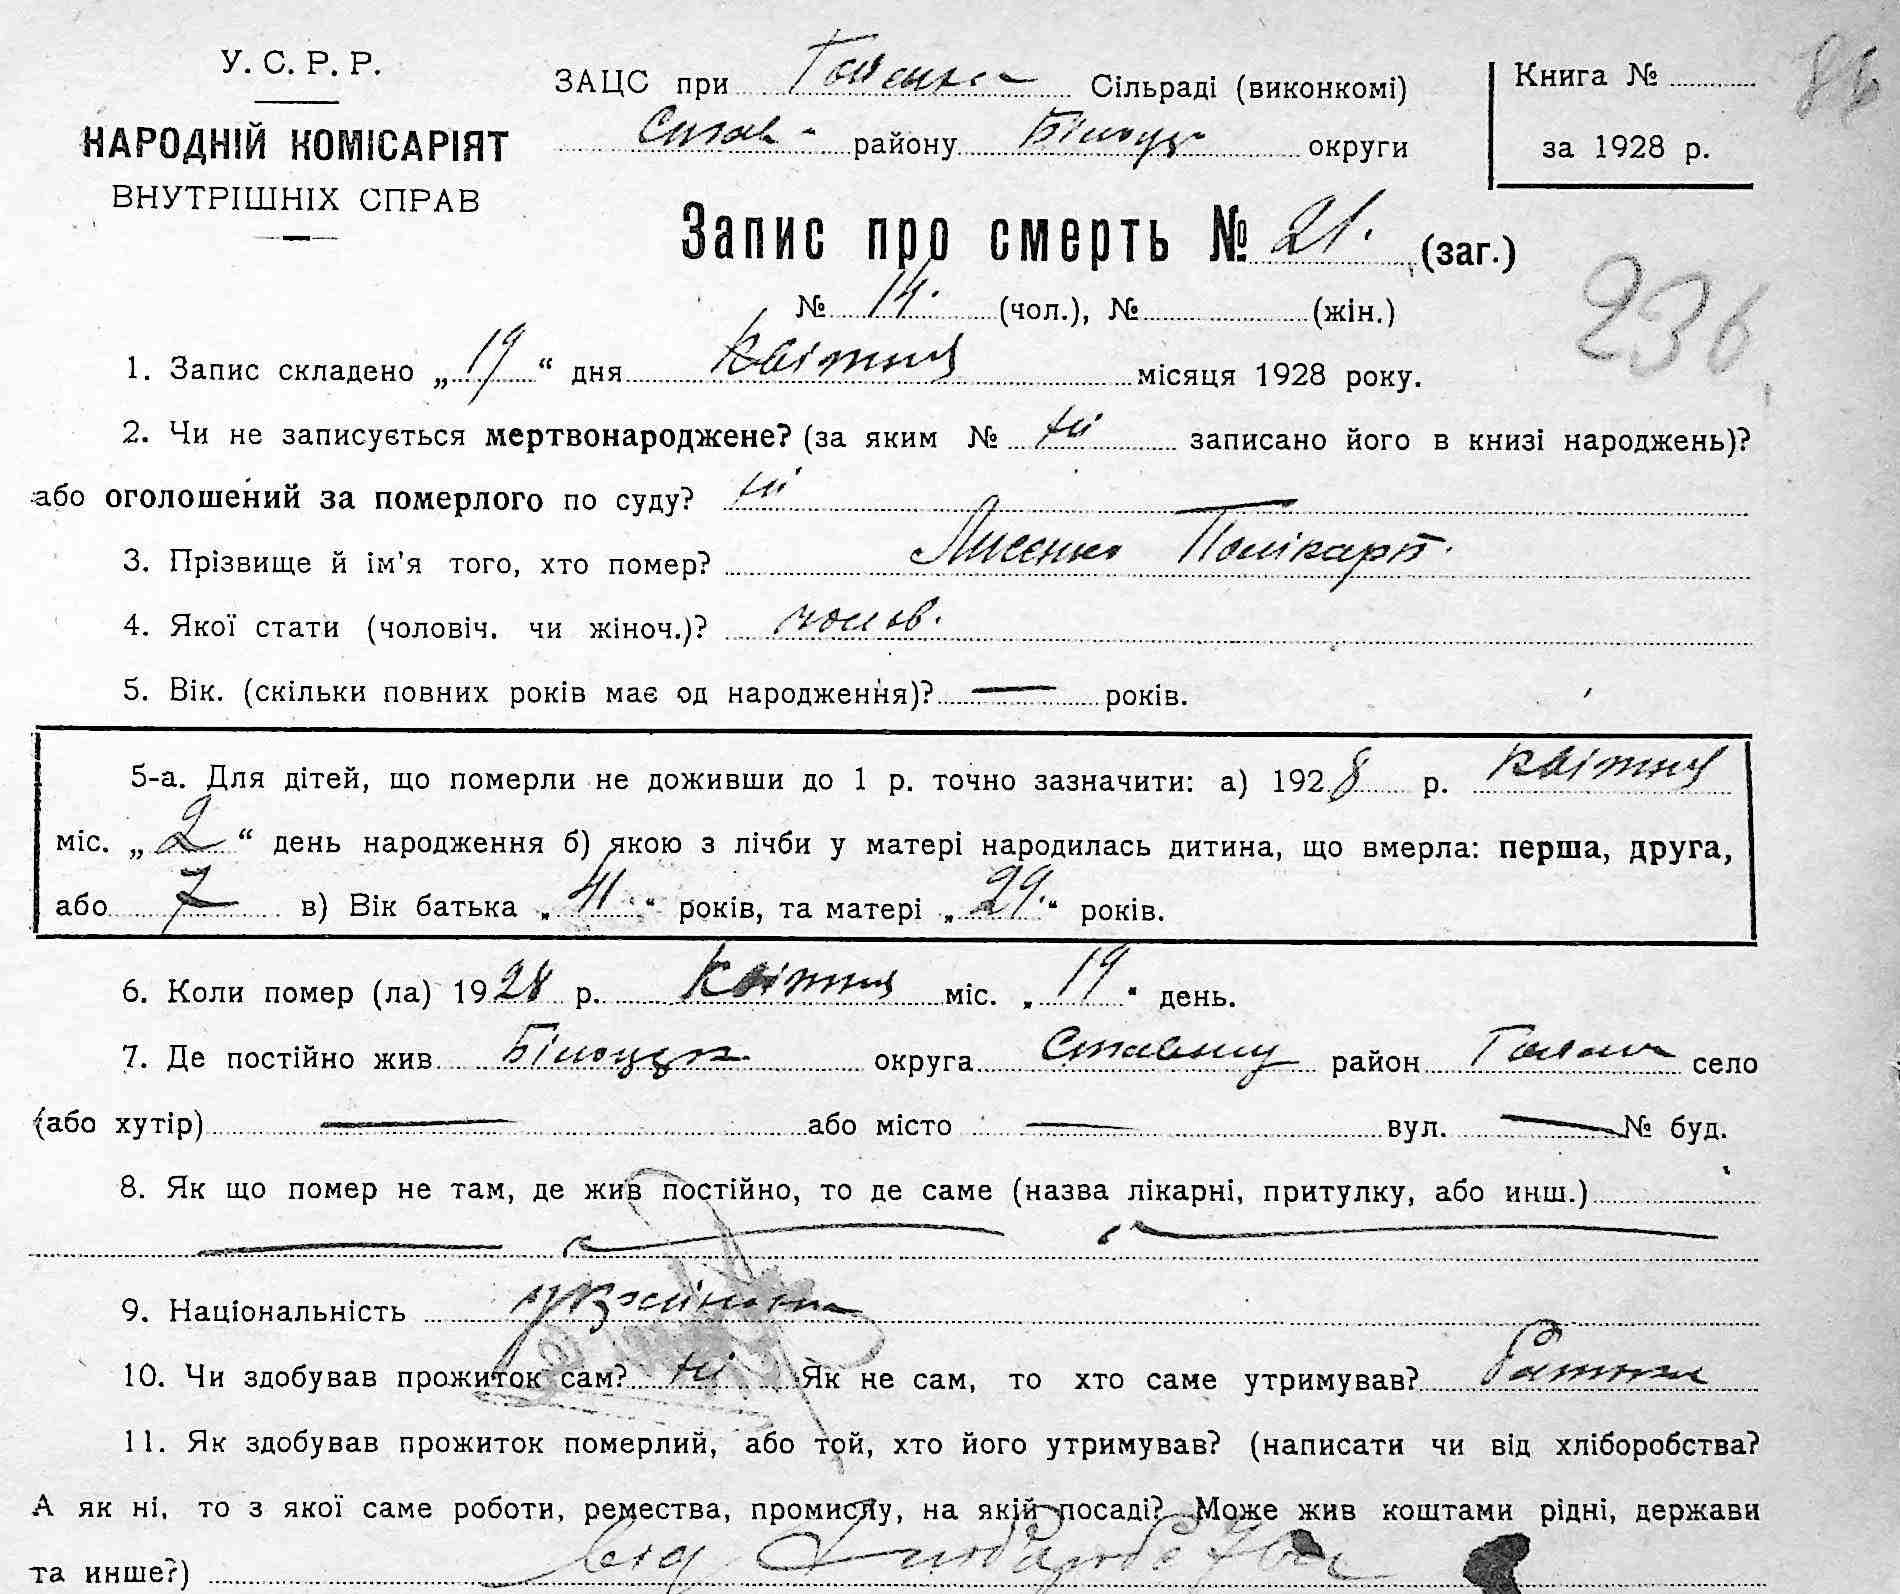 У. С. Р. Р.
НАРОДНІЙ КОМІСАРІЯТ
ВНУТРІШНІХ СПРАВ
ЗАЦС при Сільраді (виконкомі)
Став- району Білоцер округи
Книга №
за 1928 р.
86
Запис про смерть № 21. (заг.)
№ 14. (чол.), № (жін.)
236
1. Запис складено „19“ дня квітня місяця 1928 року.
2. Чи не записується мертвонароджене? (за яким № ні записано його в книзі народжень)?
або оголошений за померлого по суду? ні
3. Прізвище й ім'я того, хто помер? Лисенко Полікарп.
4. Якої стати (чоловіч. чи жіноч.)? чолов.
5. Вік. (скільки повних років має од народження)? — років.
5-а. Для дітей, що померли не доживши до 1 р. точно зазначити: а) 1928 р. квітня
міс. „2“ день народження б) якою з лічби у матері народилась дитина, що вмерла: перша, друга,
або 7 в) Вік батька „41“ років, та матері „29.“ років.
6. Коли помер (ла) 1928 р. квітня міс. „19“ день.
7. Де постійно жив Білоцерк. округа Ставищ район село
(або хутір) — або місто — вул. — № буд.
8. Як що помер не там, де жив постійно, то де саме (назва лікарні, притулку, або инш.)
9. Національність
10. Чи здобував прожиток сам? ні Як не сам, то хто саме утримував? батьки
11. Як здобував прожиток померлий, або той, хто його утримував? (написати чи від хліборобства?
А як ні, то з якої саме роботи, ремества, промислу, на якій посаді? Може жив коштами рідні, держави
та инше?) від хліборобства